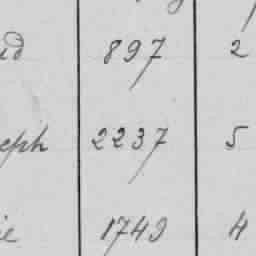 id 897 2
eph 2237 5
ie 1749 4